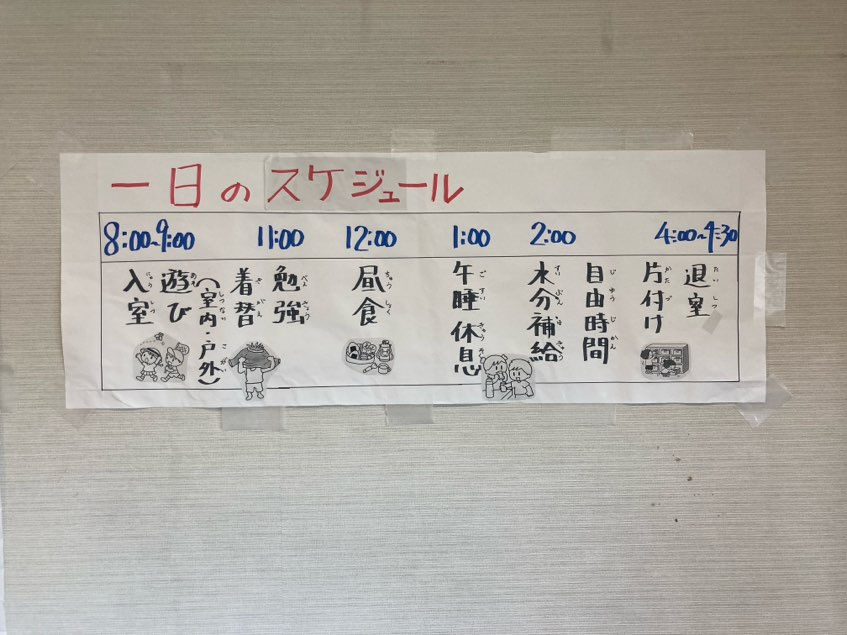 一日のスケジュール
8:00~9:00
11:00
12:00
1:00
2:00
4:00~4:30
入室
遊び
(室内・戸外)
着替
勉強
昼食
午睡休息
水分補給
自由時間
片付け
退室